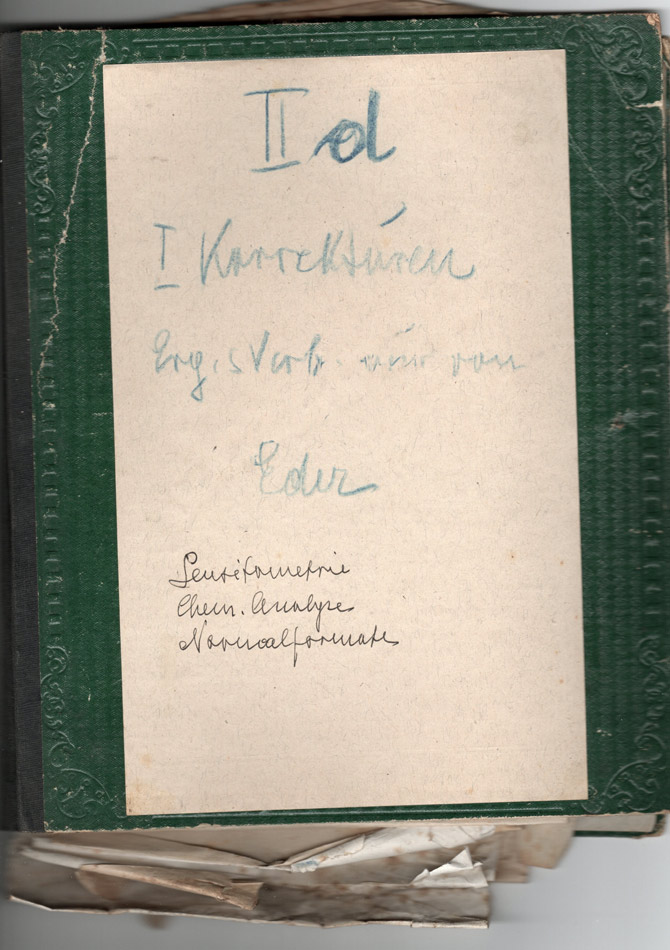 II d
I Korrekturen
Erg. s Verb. nur von
Eder
Sensitometrie
Chem. Analyse
Normalformate